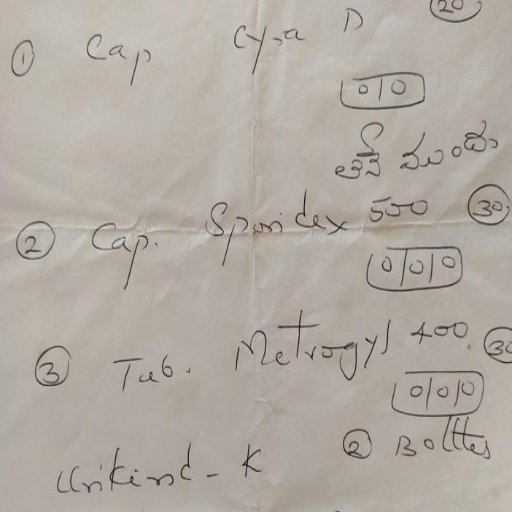 ① Cap Cyra D 20
0/0
తినే ముందు
② Cap. Sporidex 500 30
0/0/0
③ Tab. Metrogyl 400 30
0/0/0
Unkind - K ② Bottles